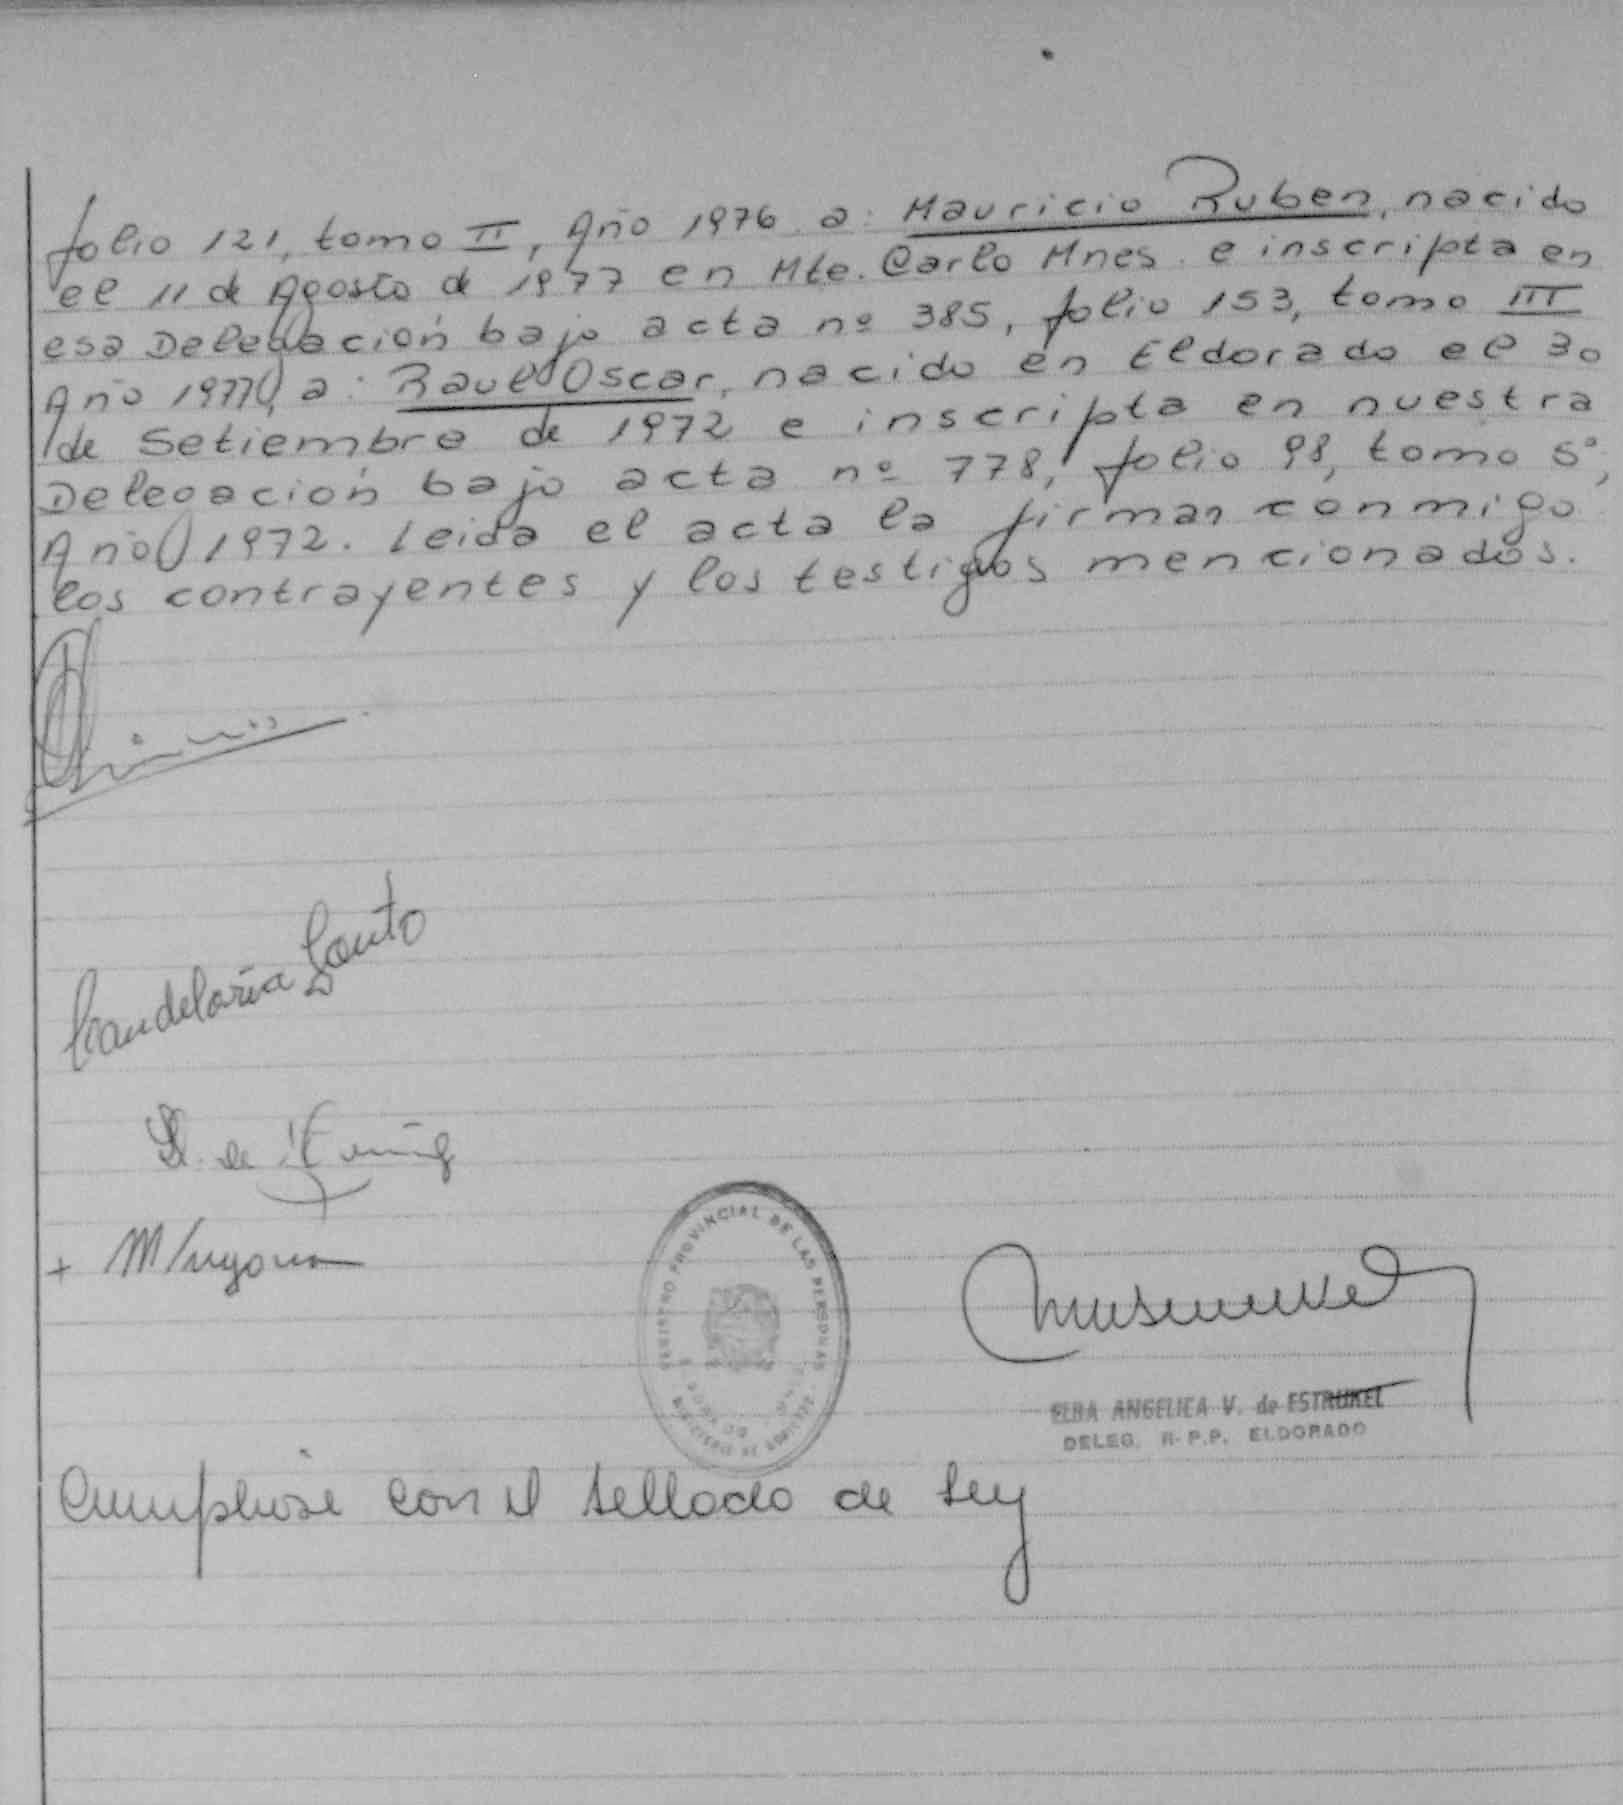 folio 121, tomo II, Año 1976. a: Mauricio Ruben, nacido
el 11 de Agosto de 1977 en Mte. Carlo Mnes. e inscripta en
esa Delegación bajo acta nº 385, folio 153, tomo III
Año 1977, a: Raul Oscar, nacido en Eldorado el 30
de Setiembre de 1972 e inscripta en nuestra
Delegación bajo acta nº 778, folio 98, tomo 5º,
Año 1972. Leida el acta la firman conmigo
los contrayentes y los testigos mencionados.
Candelaria Souto
REGISTRO PROVINCIAL DE LAS PERSONAS
ELBA ANGELICA V. de ESTRUKEL
DELEG. R.P.P. ELDORADO
Cumpliose con el sellado de Ley